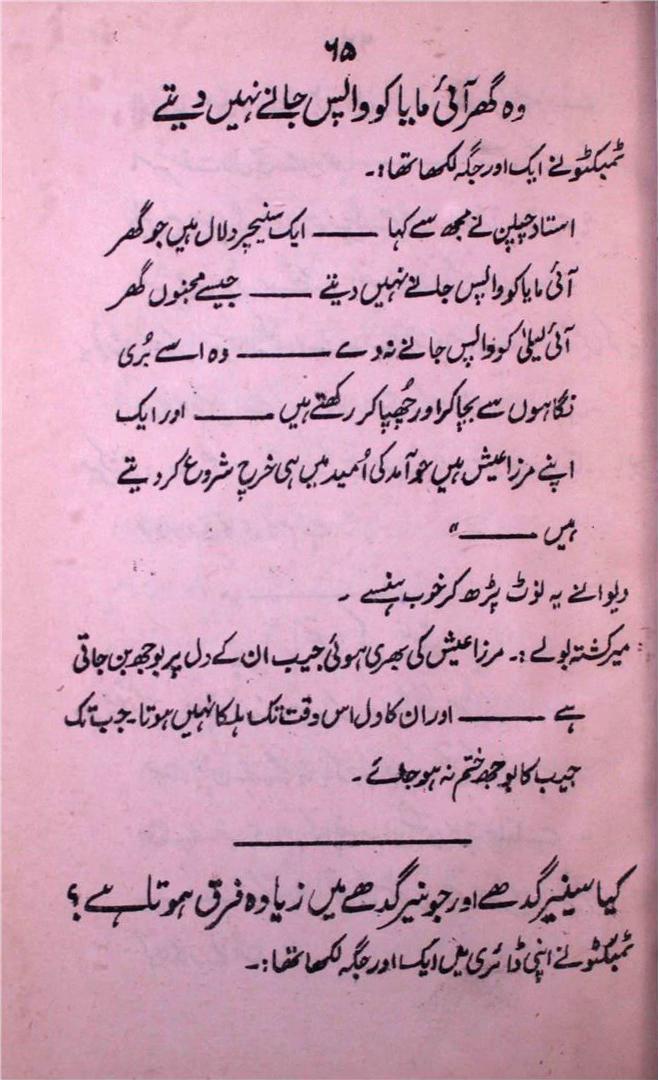 ۶۵
وہ گھر آئی مایا کو واپس جانے نہیں دیتے
ٹمبکٹو نے ایک اور جگہ لکھا تھا :۔
استاد چپلین نے مجھ سے کہا ——— ایک سنیچر دلال ہیں جو گھر
آئی مایا کو واپس جانے نہیں دیتے ——— جیسے مجنوں گھر
آئی لیلیٰ کو واپس جانے نہ دے ——— وہ اسے بُری
نگاہوں سے بچا کر اور چُھپا کر رکھتے ہیں ——— اور ایک
اپنے مرزا عیش ہیں جو آمد کی اُمید میں ہی خرچ شروع کر دیتے
ہیں ——— "
دیوانے یہ نوٹ پڑھ کر خوب ہنسے ۔
میر کشتہ بولے :۔ مرزا عیش کی بھری ہوئی جیب ان کے دل پر بوجھ بن جاتی
ہے ——— اور ان کا دل اس وقت تک ہلکا نہیں ہوتا جب تک
جیب کا بوجھ ختم نہ ہو جائے ۔
کیا سینیر گدھے اور جونیر گدھے میں زیادہ فرق ہوتا ہے ؟
ٹمبکٹو نے اپنی ڈائری میں ایک اور جگہ لکھا تھا :۔